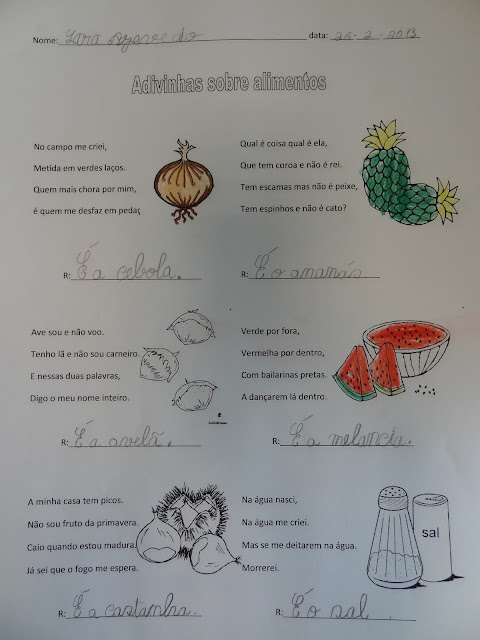 Nome: Iara Azevedo data: 26-2-2013
Adivinhas sobre alimentos
No campo me criei,
Metida em verdes laços.
Quem mais chora por mim,
é quem me desfaz em peda
R: É a cebola.
Qual é coisa qual é ela,
Que tem coroa e não é rei.
Tem escamas mas não é peixe,
Tem espinhos e não é cato?
R: É o ananás
Ave sou e não voo.
Tenho lã e não sou carneiro.
E nessas duas palavras,
Digo o meu nome inteiro.
R: É a avelã.
Verde por fora,
Vermelha por dentro,
Com bailarinas pretas.
A dançarem lá dentro.
R: É a melancia.
A minha casa tem picos.
Não sou fruto da primavera.
Caio quando estou madura
Já sei que o fogo me espera.
R: É a castanha.
Na água nasci,
Na água me criei.
Mas se me deitarem na água.
Morrerei.
sal
R: É o sal.